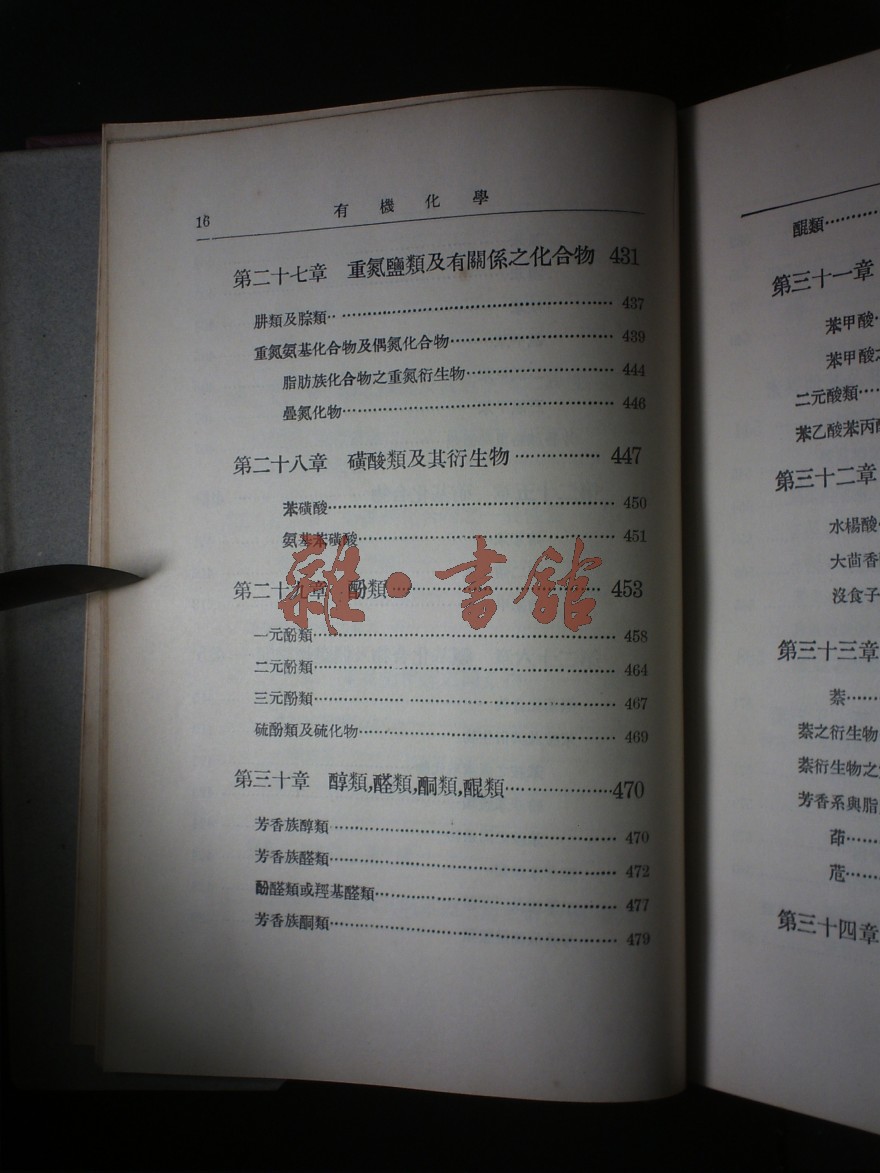 16
有機化學
第二十七章 重氮鹽類及有關係之化合物 431
肼類及腙類 437
重氮氨基化合物及偶氮化合物 439
脂肪族化合物之重氮衍生物 444
疊氮化物 446
第二十八章 磺酸類及其衍生物 447
苯磺酸 450
氨基苯磺酸 451
第二十九章 酚類 453
雜·書館
一元酚類 458
二元酚類 464
三元酚類 467
硫酚類及硫化物 469
第三十章 醇類,醛類,酮類,醌類 470
芳香族醇類 470
芳香族醛類 472
酚醛類或羥基醛類 477
芳香族酮類 479
醌類
第三十一章
苯甲酸
苯甲酸
二元酸類
苯乙酸苯丙
第三十二章
水楊酸
大茴香
沒食子
第三十三章
萘
萘之衍生物
萘衍生物之
芳香系與脂
茚
第三十四章